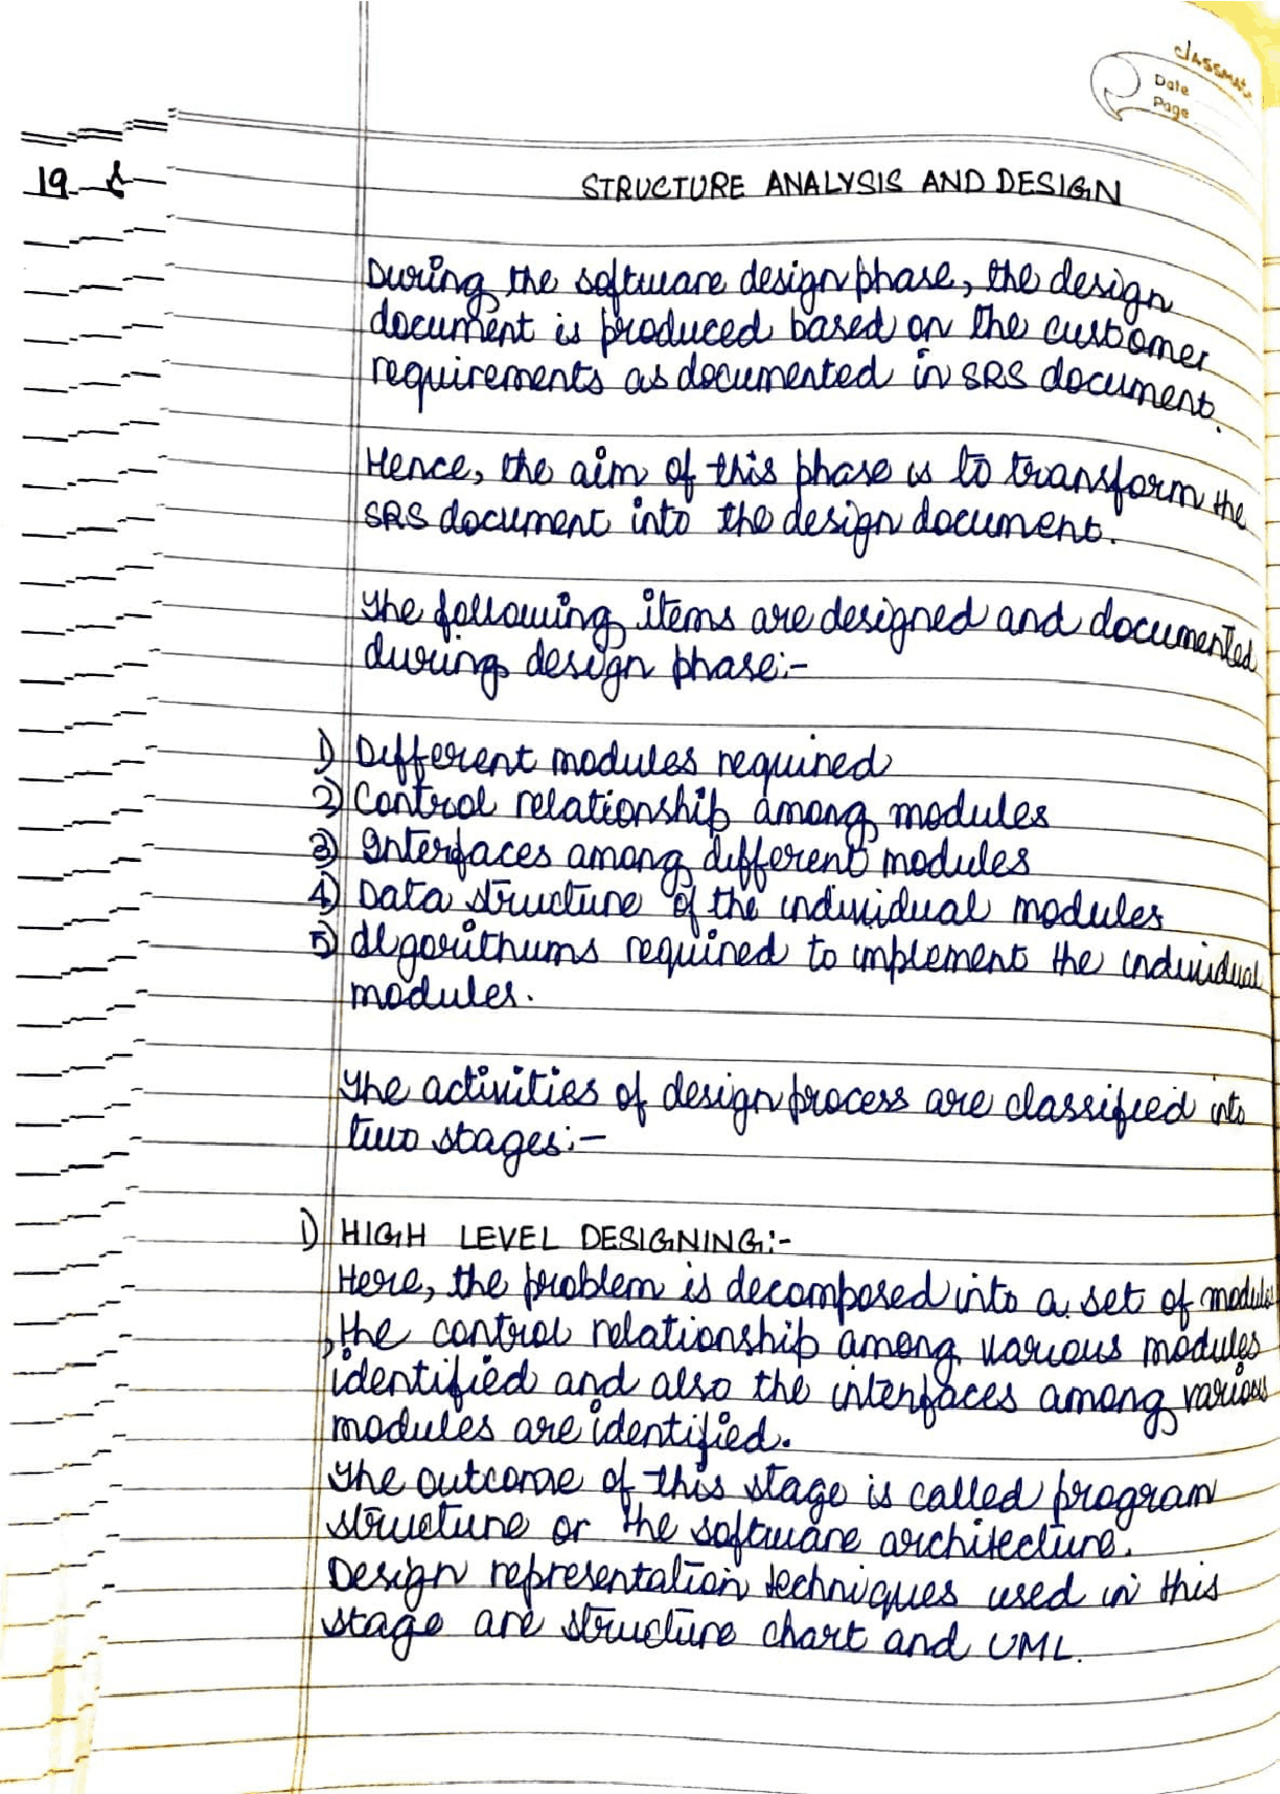 classmate
Date
Page
19
STRUCTURE ANALYSIS AND DESIGN
During the software design phase, the design
document is produced based on the customer
requirements as documented in SRS document.
Hence, the aim of this phase is to transform the
SRS document into the design document.
The following items are designed and documented
during design phase:-
1) Different modules required
2) Control relationship among modules
3) Interfaces among different modules
4) Data structure of the individual modules
5) Algorithums required to implement the individual
modules.
The activities of design process are classified into
two stages:-
1) HIGH LEVEL DESIGNING:-
Here, the problem is decomposed into a set of modules
, the control relationship among various modules
identified and also the interfaces among various
modules are identified.
The outcome of this stage is called program
structure or the software architecture.
Design representation techniques used in this
stage are structure chart and UML.